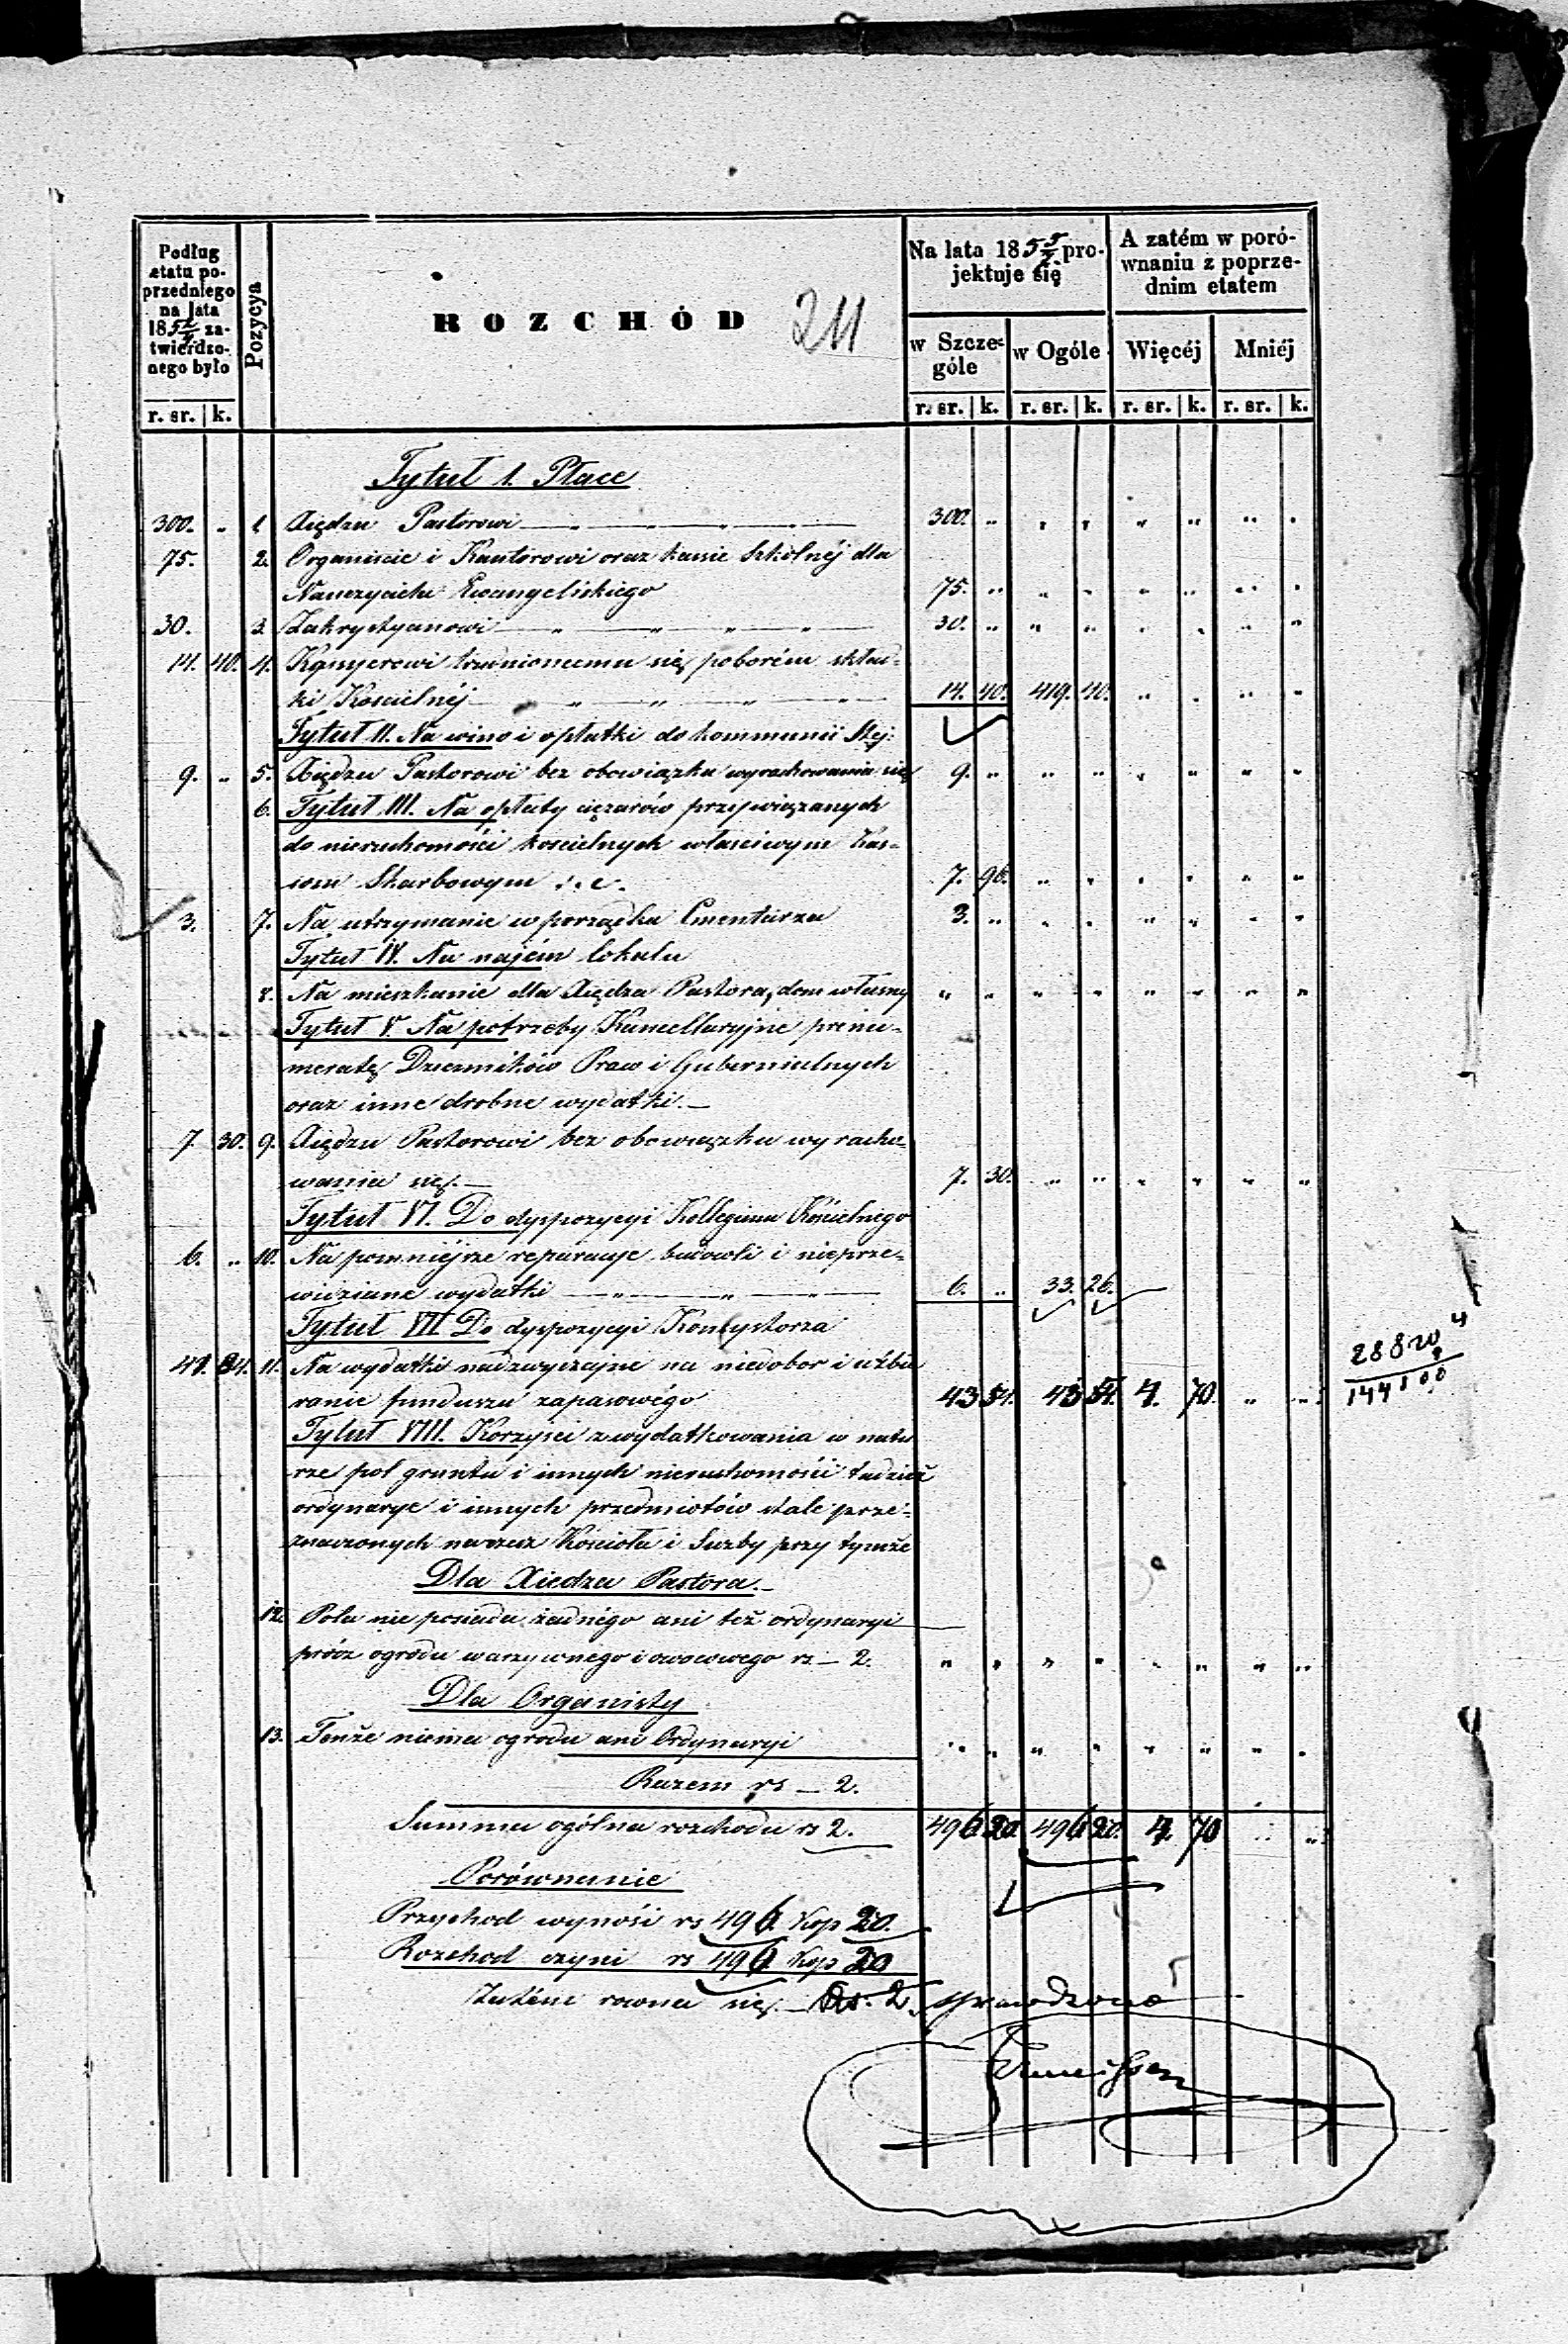 Podług etatu poprzedniego na lata 185 2/4 zatwierdzonego było
Pozycya
ROZCHÓD
211
Na lata 185 5/7 projektuje się
A zatém w porównaniu z poprzednim etatem
w Szczególe
w Ogóle
Więcéj
Mniéj
r. sr. k. r. sr. k. r. sr. k. r. sr. k. r. sr. k.
Tytuł 1. Płace
300. „ 1. Xiędzu Pastorowi 300. „ „ „ „ „ „ „
75. 2. Organiście i Kantorowi oraz kassie Szkolnéj dla
Nauczyciela Ewangelickiego 75. „ „ „ „ „ „ „
30. 3. Zakrystyanowi 30. „ „ „ „ „ „ „
14. 40. 4. Kassyerowi trudnionemu się poborém skład-
ki Kościelnéj 14. 40. 419. 40. „ „ „ „
Tytuł II. Na wino i opłatki do kommunii Stéj:
9. „ 5. Xiędzu Pastorowi bez obowiązku wyrachowania się 9. „ „ „ „ „ „ „
6. Tytuł III. Na opłaty ciężarów przywiązanych
do nieruchomości kościelnych właściwym Kas-
som Skarbowym 7. 96. „ „ „ „ „ „
3. 7. Na utrzymanie w porządku Cmentarza 3. „ „ „ „ „ „ „
Tytuł IV. Na najém lokalu
8. Na mieszkanie dla Xiędza Pastora, dom własny „ „ „ „ „ „ „ „
Tytuł V. Na potrzeby Kancellaryjne prenu-
meratę Dzienników Praw i Gubernialnych
oraz inne drobne wydatki.—
7 30. 9. Xiędzu Pastorowi bez obowiązku wyracho-
wania się.— 7. 30. „ „ „ „ „ „
Tytuł VI. Do dyspozycyi Kollegium Kościelnego
6. „ 10. Na pomniejsze reparacye budowli i nieprze-
widziane wydatki 6. „ 33. 26.
Tytuł VII Do dyspozycyi Konsystorza
11. Na wydatki nadzwyczajne na niedobor i uzbie
ranie funduszu zapasowégo 43 54. 43 54. 4. 70. „ „
Tytuł VIII. Korzyści z wydatkowania w natu
rze pól gruntu i innych nieruchomości tudzież
ordynarye i innych przedmiotów stale prze-
znaczonych na rzecz Kościoła i Służby przy tymże
Dla Xiedza Pastora.—
12. Pola nie posiada żadnégo ani też ordynaryi
prócz ogrodu warzywnego i owocowego rs — 2. „ „ „ „ „ „ „ „
Dla Organisty
13. Tenże niema ogrodu ani Ordynaryi „ „ „ „ „ „ „ „
Razem rs — 2.
Summa ogólna rozchodu rs 2. 496 20 496 20. 4. 70 „ „
Porównanie
Przychod wynosi rs 496. Kop 20.
Rozchod czyni rs 496 Kop 20
Zatém rowna się.— Rs. 2. sprawdzono